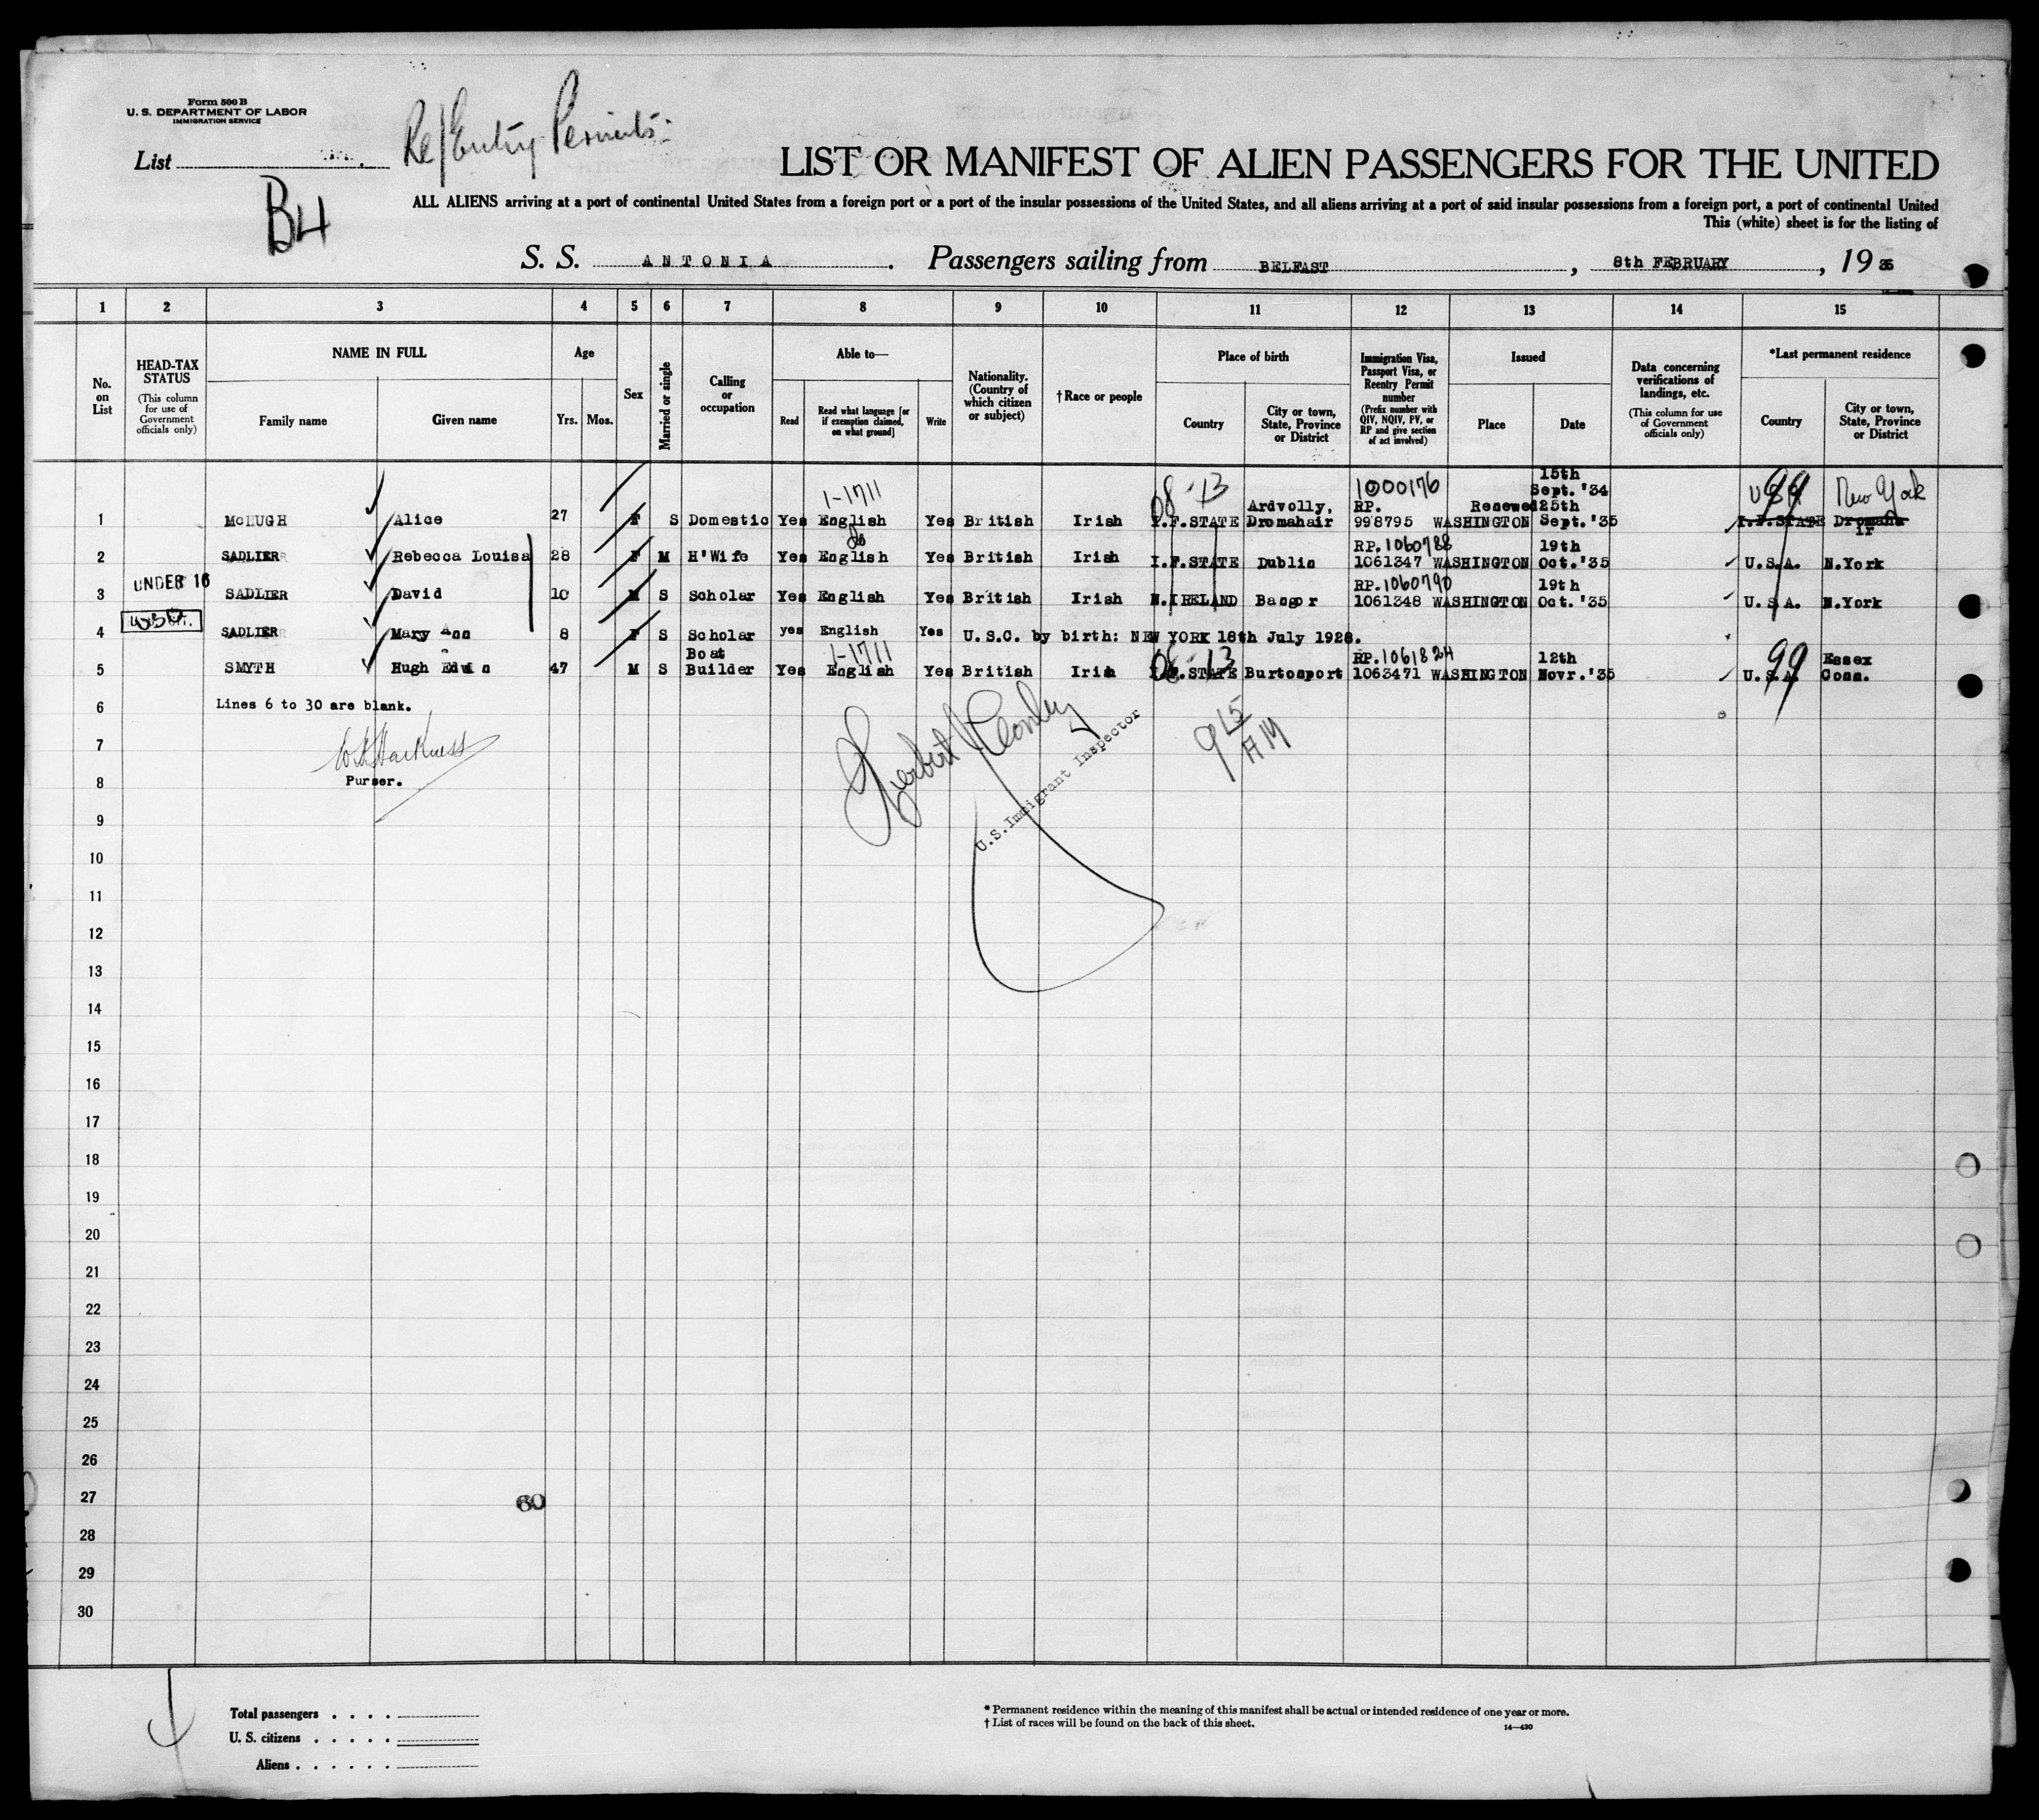 Form 500 B
U. S. DEPARTMENT OF LABOR
IMMIGRATION SERVICE
List
Re/Entry Permits:
B4
LIST OR MANIFEST OF ALIEN PASSENGERS FOR THE UNITED
ALL ALIENS arriving at a port of continental United States from a foreign port or a port of the insular possessions of the United States, and all aliens arriving at a port of said insular possessions from a foreign port, a port of continental United
This (white) sheet is for the listing of
S. S. ANTONIA. Passengers sailing from BELFAST, 8th FEBRUARY, 19 36
1 2 3 4 5 6 7 8 9 10 11 12 13 14 15
No. on List
HEAD-TAX STATUS
(This column for use of Government officials only)
NAME IN FULL
Family name Given name
Age
Yrs. Mos.
Sex
Married or single
Calling or occupation
Able to—
Read
Read what language [or if exemption claimed, on what ground]
Write
Nationality. (Country of which citizen or subject)
† Race or people
Place of birth
Country
City or town, State, Province or District
Immigration Visa, Passport Visa, or Reentry Permit number
(Prefix number with QIV, NQIV, PV, or RP and give section of act involved)
Issued
Place Date
Data concerning verifications of landings, etc.
(This column for use of Government officials only)
*Last permanent residence
Country
City or town, State, Province or District
15th
1-1711 08-13 1000176 Sept.'34 U.S.A. 99 New York
Ardvolly, RP. Renewed 25th
1 McHUGH Alice 27 F S Domestic Yes English Yes British Irish I.F.STATE Dromahair 998795 WASHINGTON Sept.'35 I.F.STATE Dromahair
RP.1060788 19th
2 SADLIER Rebecca Louisa 28 F M H'Wife Yes English Yes British Irish I.F.STATE Dublin 1061347 WASHINGTON Oct.'35 U.S.A. N.York
UNDER 16 RP.1060790 19th
3 SADLIER David 10 M S Scholar Yes English Yes British Irish N.IRELAND Bangor 1061348 WASHINGTON Oct.'35 U.S.A. N.York
4 SADLIER Mary Ann 8 F S Scholar yes English Yes U.S.C. by birth: NEW YORK 18th July 1928.
Boat 1-1711 08-13 RP.1061824 12th 99 Essex
5 SMYTH Hugh Edwin 47 M S Builder Yes English Yes British Irish I.F.STATE Burtonport 1063471 WASHINGTON Novr.'35 U.S.A. Conn.
6 Lines 6 to 30 are blank.
7 W. Harkness
Purser.
U.S.Immigrant Inspector
9 15 AM
8
9
10
11
12
13
14
15
16
17
18
19
20
21
22
23
24
25
26
27
60
28
29
30
Total passengers . . . .
U. S. citizens . . . . .
Aliens . . . . . .
* Permanent residence within the meaning of this manifest shall be actual or intended residence of one year or more.
† List of races will be found on the back of this sheet.
14—430